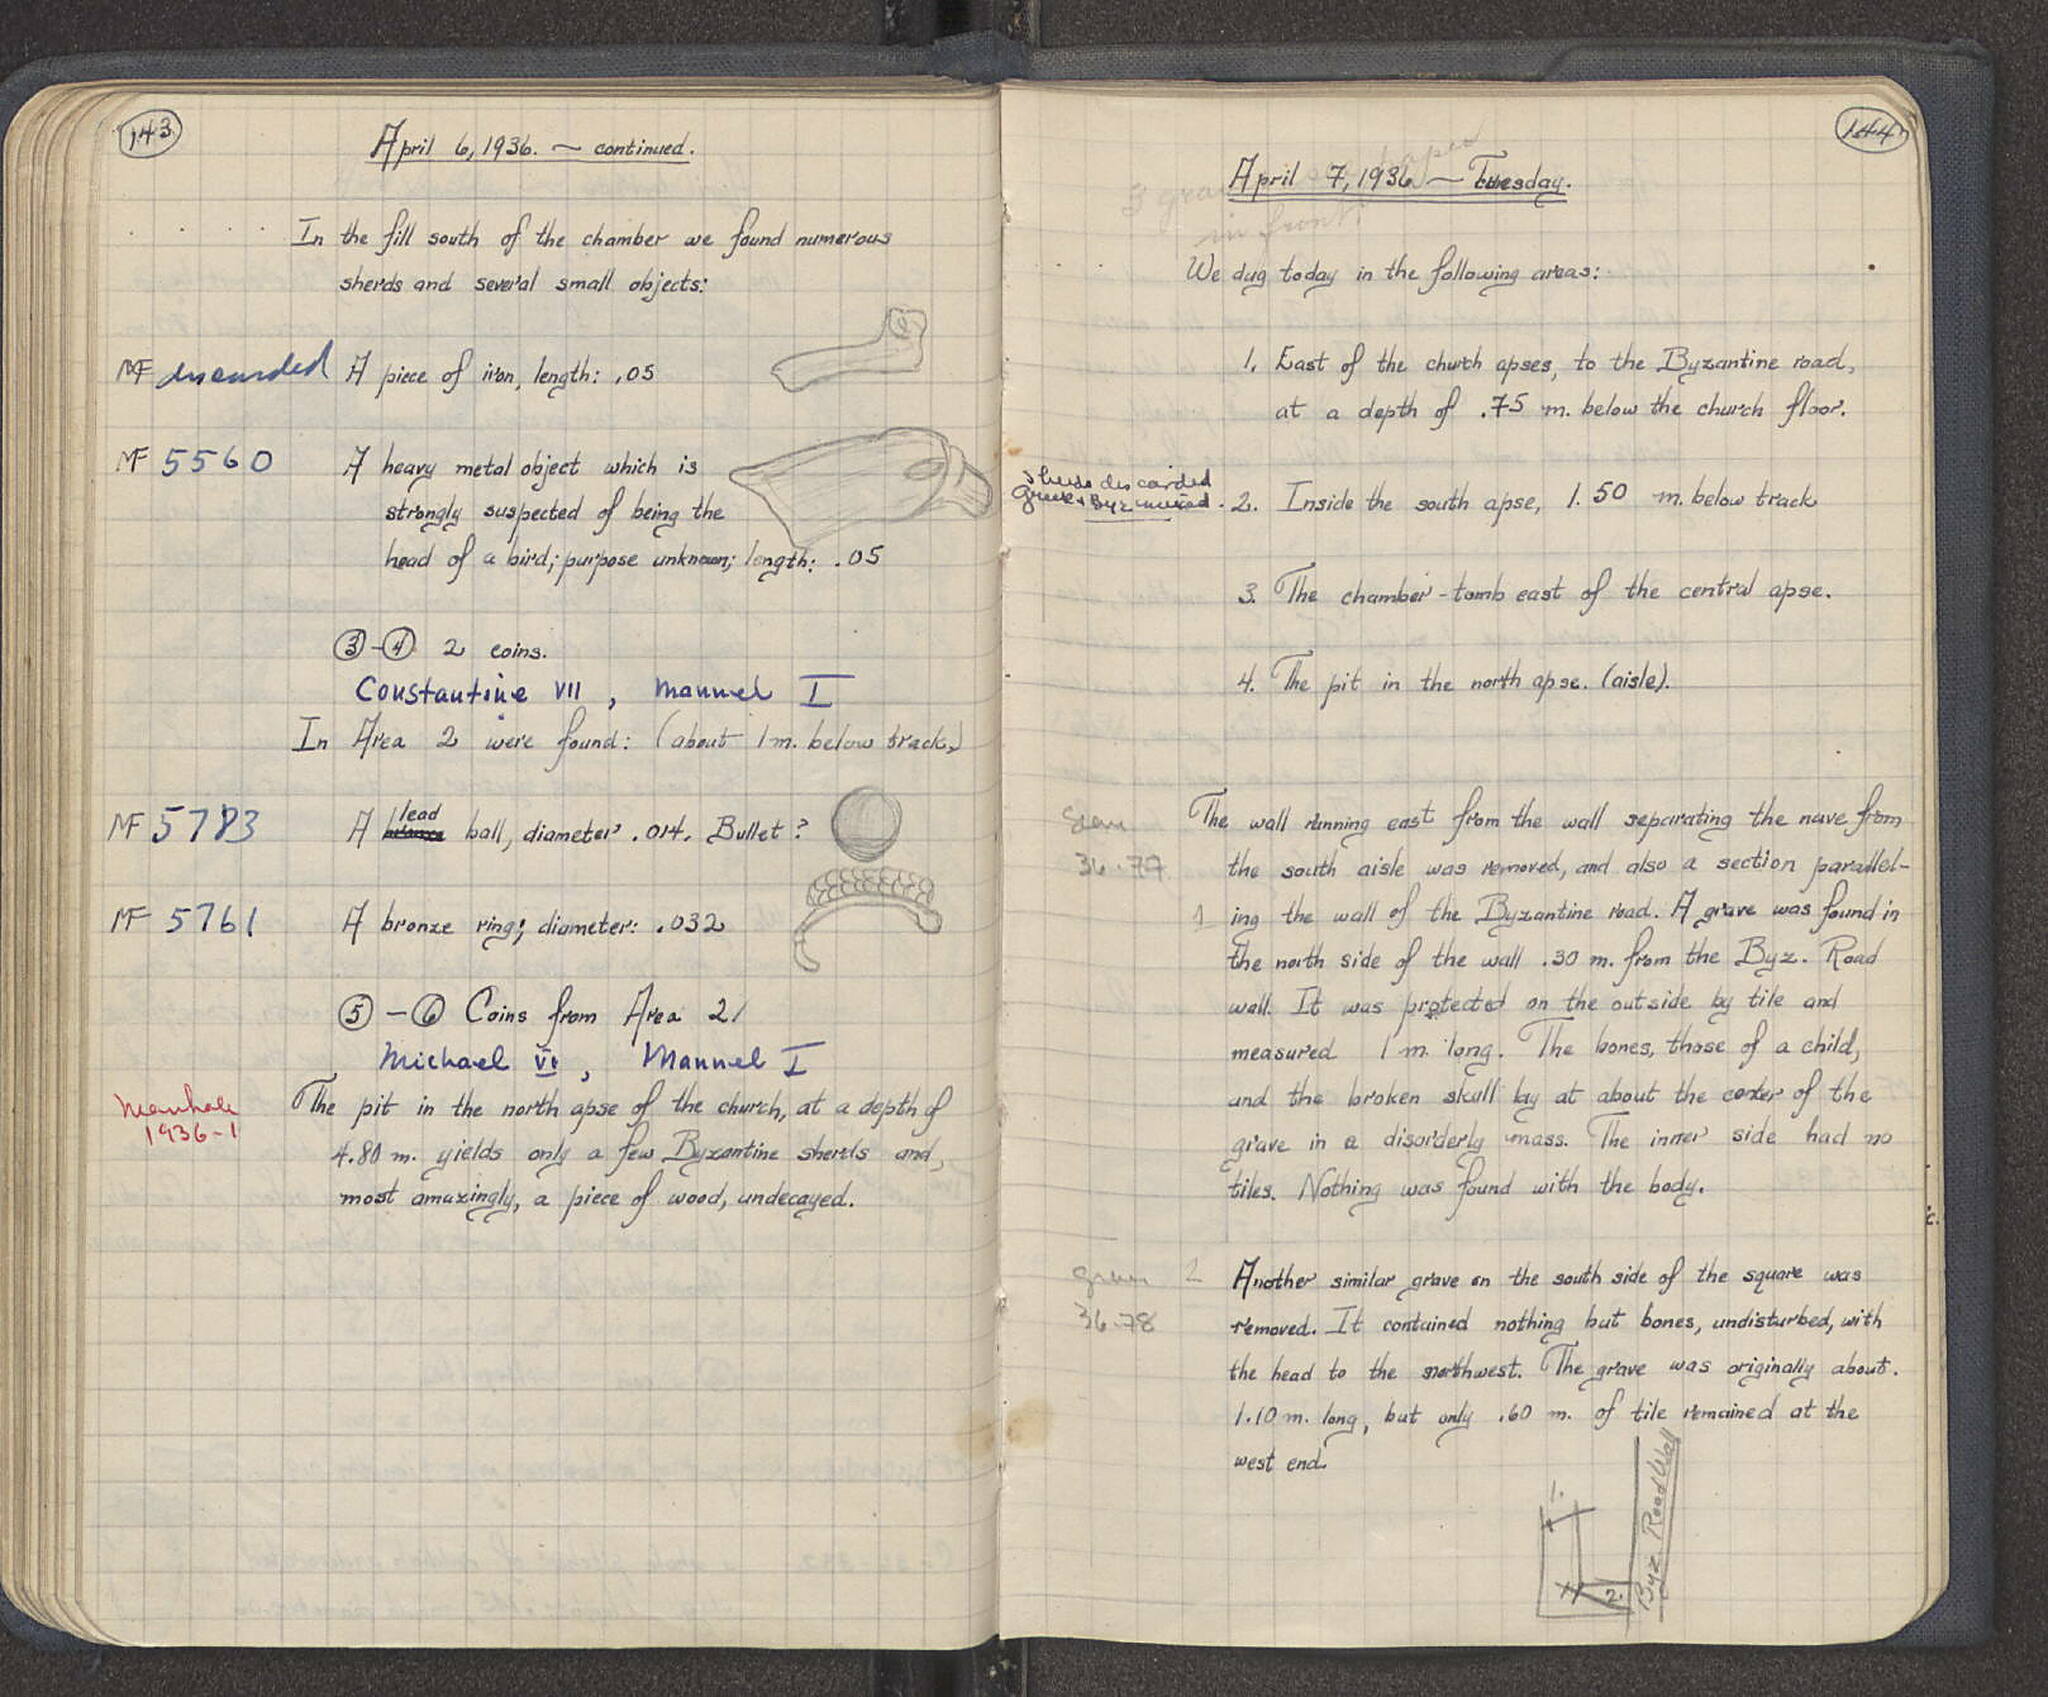 143
April 6, 1936. — continued.
In the fill south of the chamber we found numerous
sherds and several small objects:
MF discarded A piece of iron, length: .05
MF 5560 A heavy metal object which is
strongly suspected of being the
head of a bird; purpose unknown; length: .05
③-④ 2 coins.
Constantine VII, Manuel I
In Area 2 were found: (about 1 m. below track.)
MF 5783 A lead ball, diameter .014. Bullet?
MF 5761 A bronze ring; diameter: .032
⑤-⑥ Coins from Area 2/
Michael VI, Manuel I
Manhole
1936-1
The pit in the north apse of the church, at a depth of
4.80 m. yields only a few Byzantine sherds and,
most amazingly, a piece of wood, undecayed.
144
April 7, 1936 — Tuesday.
in front
We dug today in the following areas:
1. East of the church apses, to the Byzantine road,
at a depth of .75 m. below the church floor.
sherds discarded
Greek + Byz mixed.
2. Inside the south apse, 1.50 m. below track
3. The chamber-tomb east of the central apse.
4. The pit in the north apse. (aisle).
Grave
36-77
The wall running east from the wall separating the nave from
the south aisle was removed, and also a section parallel-
1 ing the wall of the Byzantine road. A grave was found in
the north side of the wall .30 m. from the Byz. Road
wall. It was protected on the outside by tile and
measured 1 m. long. The bones, those of a child,
and the broken skull lay at about the center of the
grave in a disorderly mass. The inner side had no
tiles. Nothing was found with the body.
Grave
36-78
2 Another similar grave on the south side of the square was
removed. It contained nothing but bones, undisturbed, with
the head to the northwest. The grave was originally about
1.10 m. long, but only .60 m. of tile remained at the
west end.
1.
2.
Byz. Road Wall